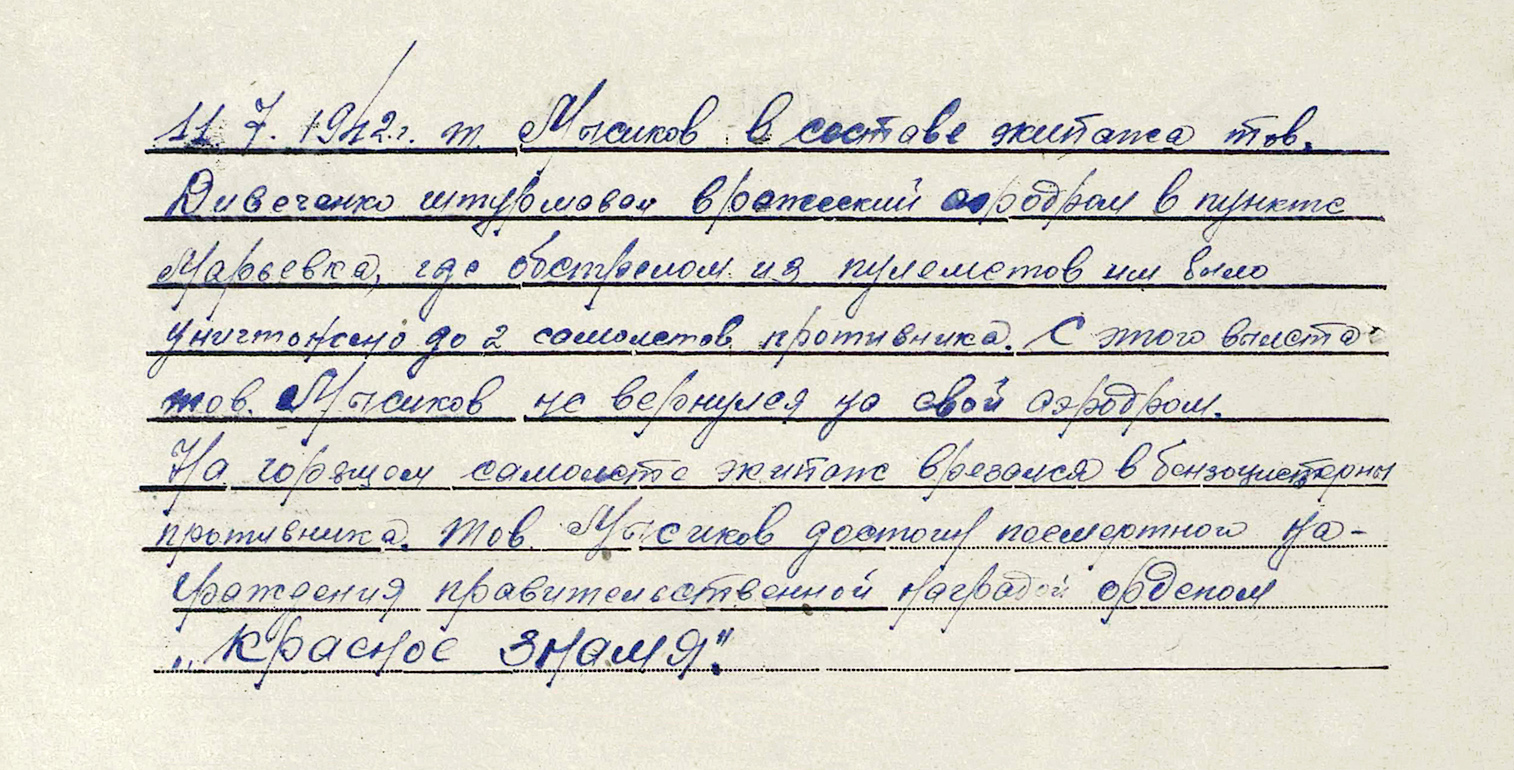 11.7.1942 г. т. Мысиков в составе экипажа тов.
Дивеченко штурмовал вражеский аэродром в пункте
Марьевка, где обстрелом из пулеметов им было
уничтожено до 2 самолетов противника. С этого вылета
тов. Мысиков не вернулся на свой аэродром.
На горящем самолете экипаж врезался в бензоцистерны
противника. Тов. Мысиков достоин посмертного на-
граждения правительственной наградой орденом
„Красное Знамя".